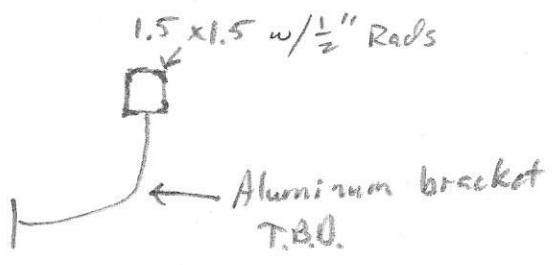 1.5 x1.5 w/ 1/2" Rads
Aluminum bracket
T.B.D.